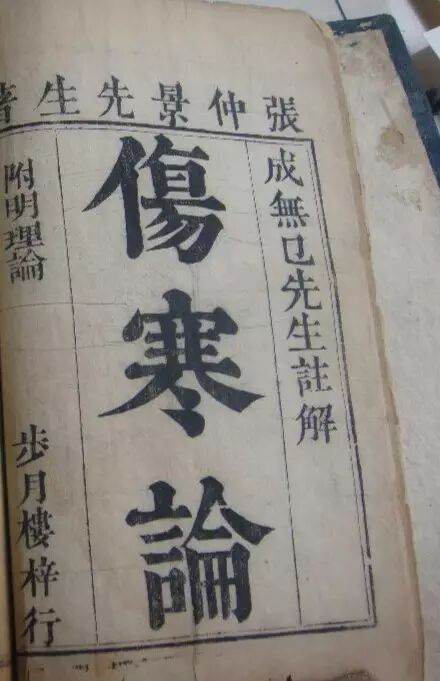 張仲景先生著
成無已先生註解
傷寒論
附明理論
步月樓梓行